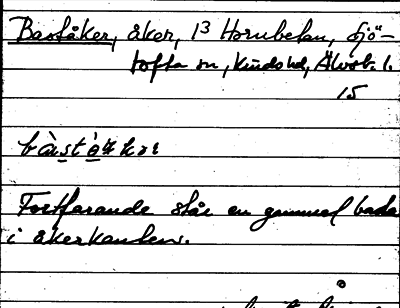 Baståker, åker, 1³ Hornbetan, Sjö-
tofta sn, Kinds hd, Älvsb. l.
15
Fortfarande står en gammal bada
i åkerkanten.